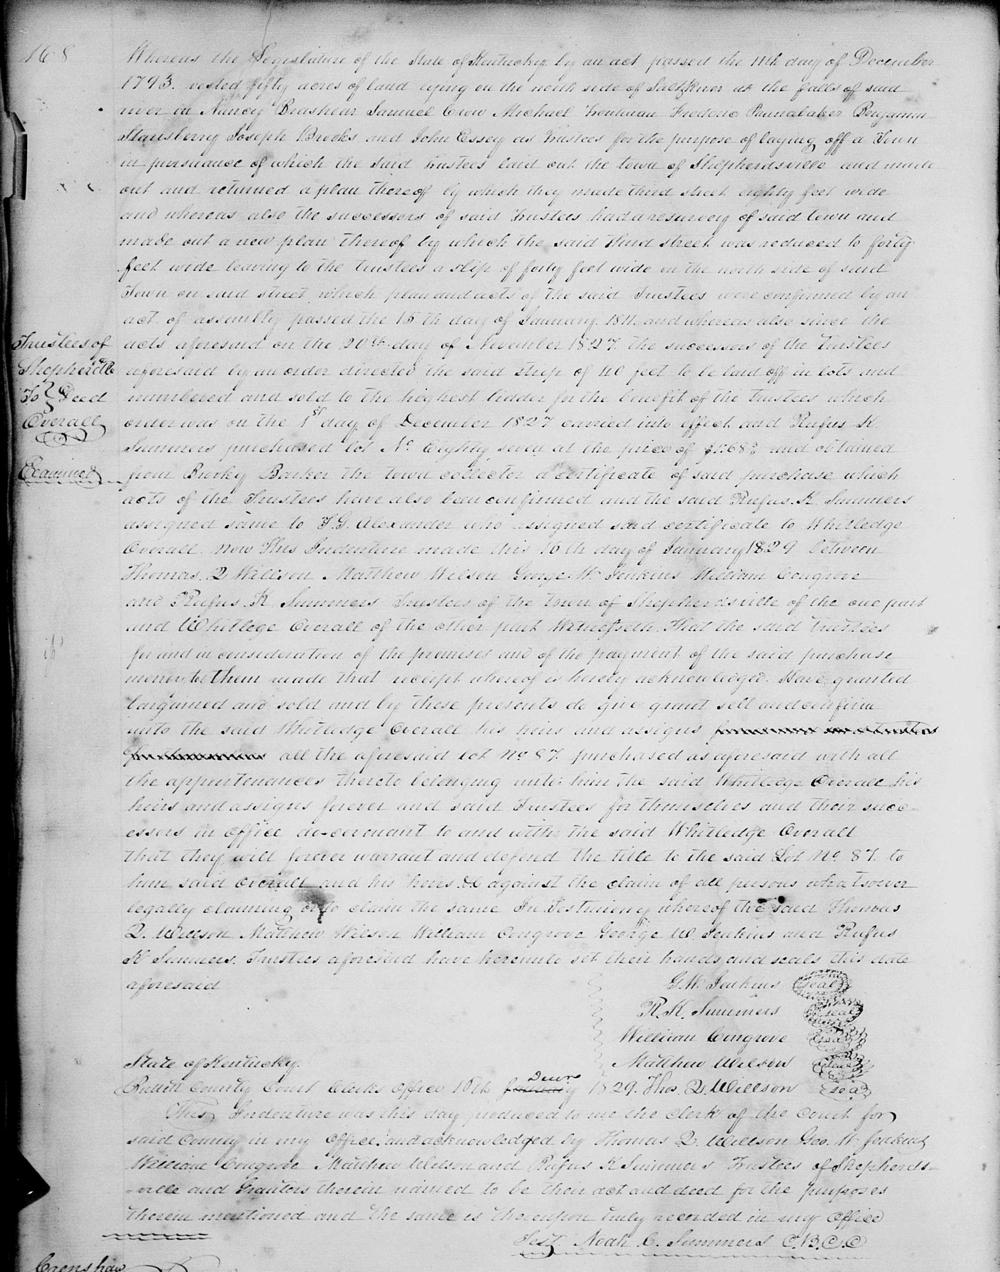 168
Whereas the Legislature of the State of Kentucky by an act passed the 11th day of December
1793. vested fifty acres of land lying on the north side of Salt River at the falls of said
river in Nancy Brashear Samuel Crow Michael Troutman Frederic Pannabaker Benjamin
Stansberry Joseph Brooks and John Essey as Trustees for the purpose of laying off a Town
in pursuance of which the said Trustees laid out the town of Shepherdsville and made
out and returned a plan thereof by which they made third street eighty feet wide
and whereas also the successors of said Trustees had a resurvey of said town and
made out a new plan thereof by which the said third street was reduced to forty
feet wide leaving to the trustees a slip of forty feet wide on the north side of said
Town on said street, which plan and acts of the said Trustees were confirmed by an
act of assembly passed the 15th day of January 1811. and whereas also since the
acts aforesaid on the 20th day of November 1827 the successors of the Trustees
aforesaid by an order directed the said strip of 40 feet to be laid off in lots and
numbered and sold to the highest bidder for the benefit of the Trustees which
order was on the 1st day of December 1827 carried into effect and Rufus K.
Summers purchased lot No Eighty seven at the price of and obtained
from Barker the town collector a certificate of said purchase which
acts of the Trustees have also been confirmed and the said Rufus. K. Summers
assigned same to F. G. Alexander who assigned said certificate to Whitledge
Overall. Now This Indenture made this 16th day of January 1829 between
Thomas. Q Willson Matthew Wilson George W Jenkins William Congrove
and Rufus. K. Summers Trustees of the town of Shepherdsville of the one part
and Whitlege Overall of the other part Witnesseth. That the said trustees
for and in consideration of the premises and of the payment of the said purchase
money be them made that receipt whereof is hereby acknowledged. Have granted
bargained and sold and by these presents do give grant sell and confirm
unto the said Whitledge Overall his heirs and assigns
all the aforesaid Lot No 87. purchased as aforesaid with all
the appurtenances thereto belonging unto him the said Whitlege Overall his
heirs and assigns forever and said Trustees for themselves and their succ-
essors in office do covenant to and with the said Whitledge Overall
that they will forever warrant and defend the title to the said Lot No. 87. to
him said Overall and his heirs &c against the claim of all persons whatsoever
legally claiming or to claim the same In Testimony whereof the said Thomas
Q. Willson Matthew Wilson William Congrove George W. Jenkins and Rufus
K Summers. Trustees aforesaid have hereunto set their hands and seals this date
aforesaid
Trustees of
Shepherdsville
To } Deed
Overall
Examined
G. W. Jenkins Seal
R. K. Summers Seal
William Congrove Seal
Matthew Wilson Seal
Thos. Q. Willson Seal
State of Kentucky.
Bullitt County Court Clerks office 10th 1829.
This Indenture was this day produced to me the clerk of the Court for
said County in my office and acknowledged by Thomas Q. Willson Geo. W. Jenkins
William Congrove Matthew Wilson and Rufus K Summers Trustees of Shepherds-
-ville and Grantors therein named to be their act and deed for the purposes
therein mentioned and the same is thereupon truly recorded in my office
Test Noah C. Summers C. B. C. C
Crenshaw